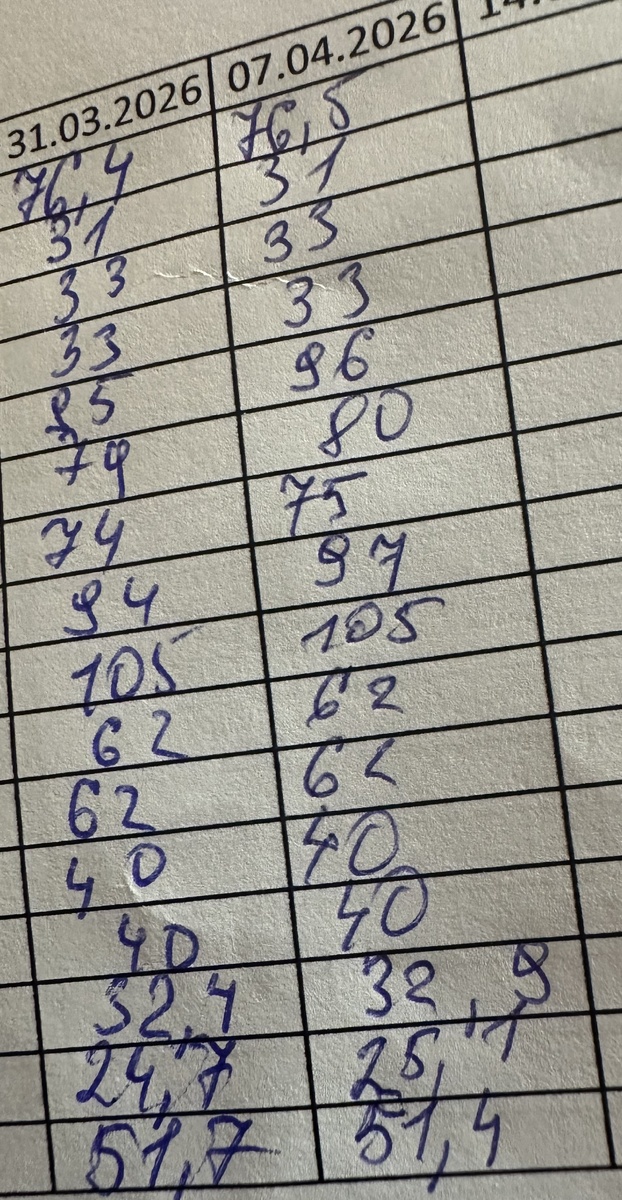 31.03.2026 07.04.2026
76,4 76,5
31 31
33 33
33 33
95 96
79 80
74 75
94 97
105 105
62 62
62 62
40 40
40 40
32,4 32,9
24,7 25,1
51,7 51,4